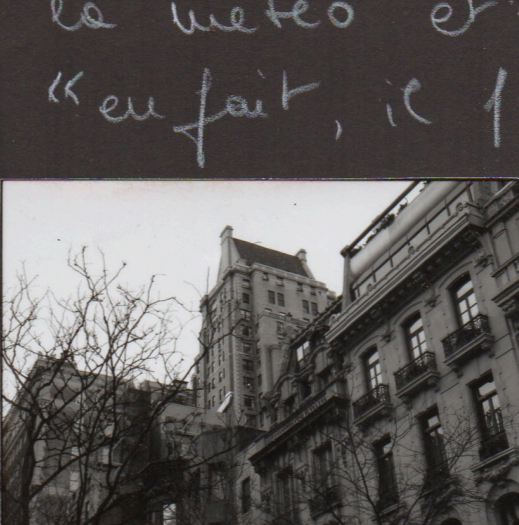 la météo et
“en fait, il